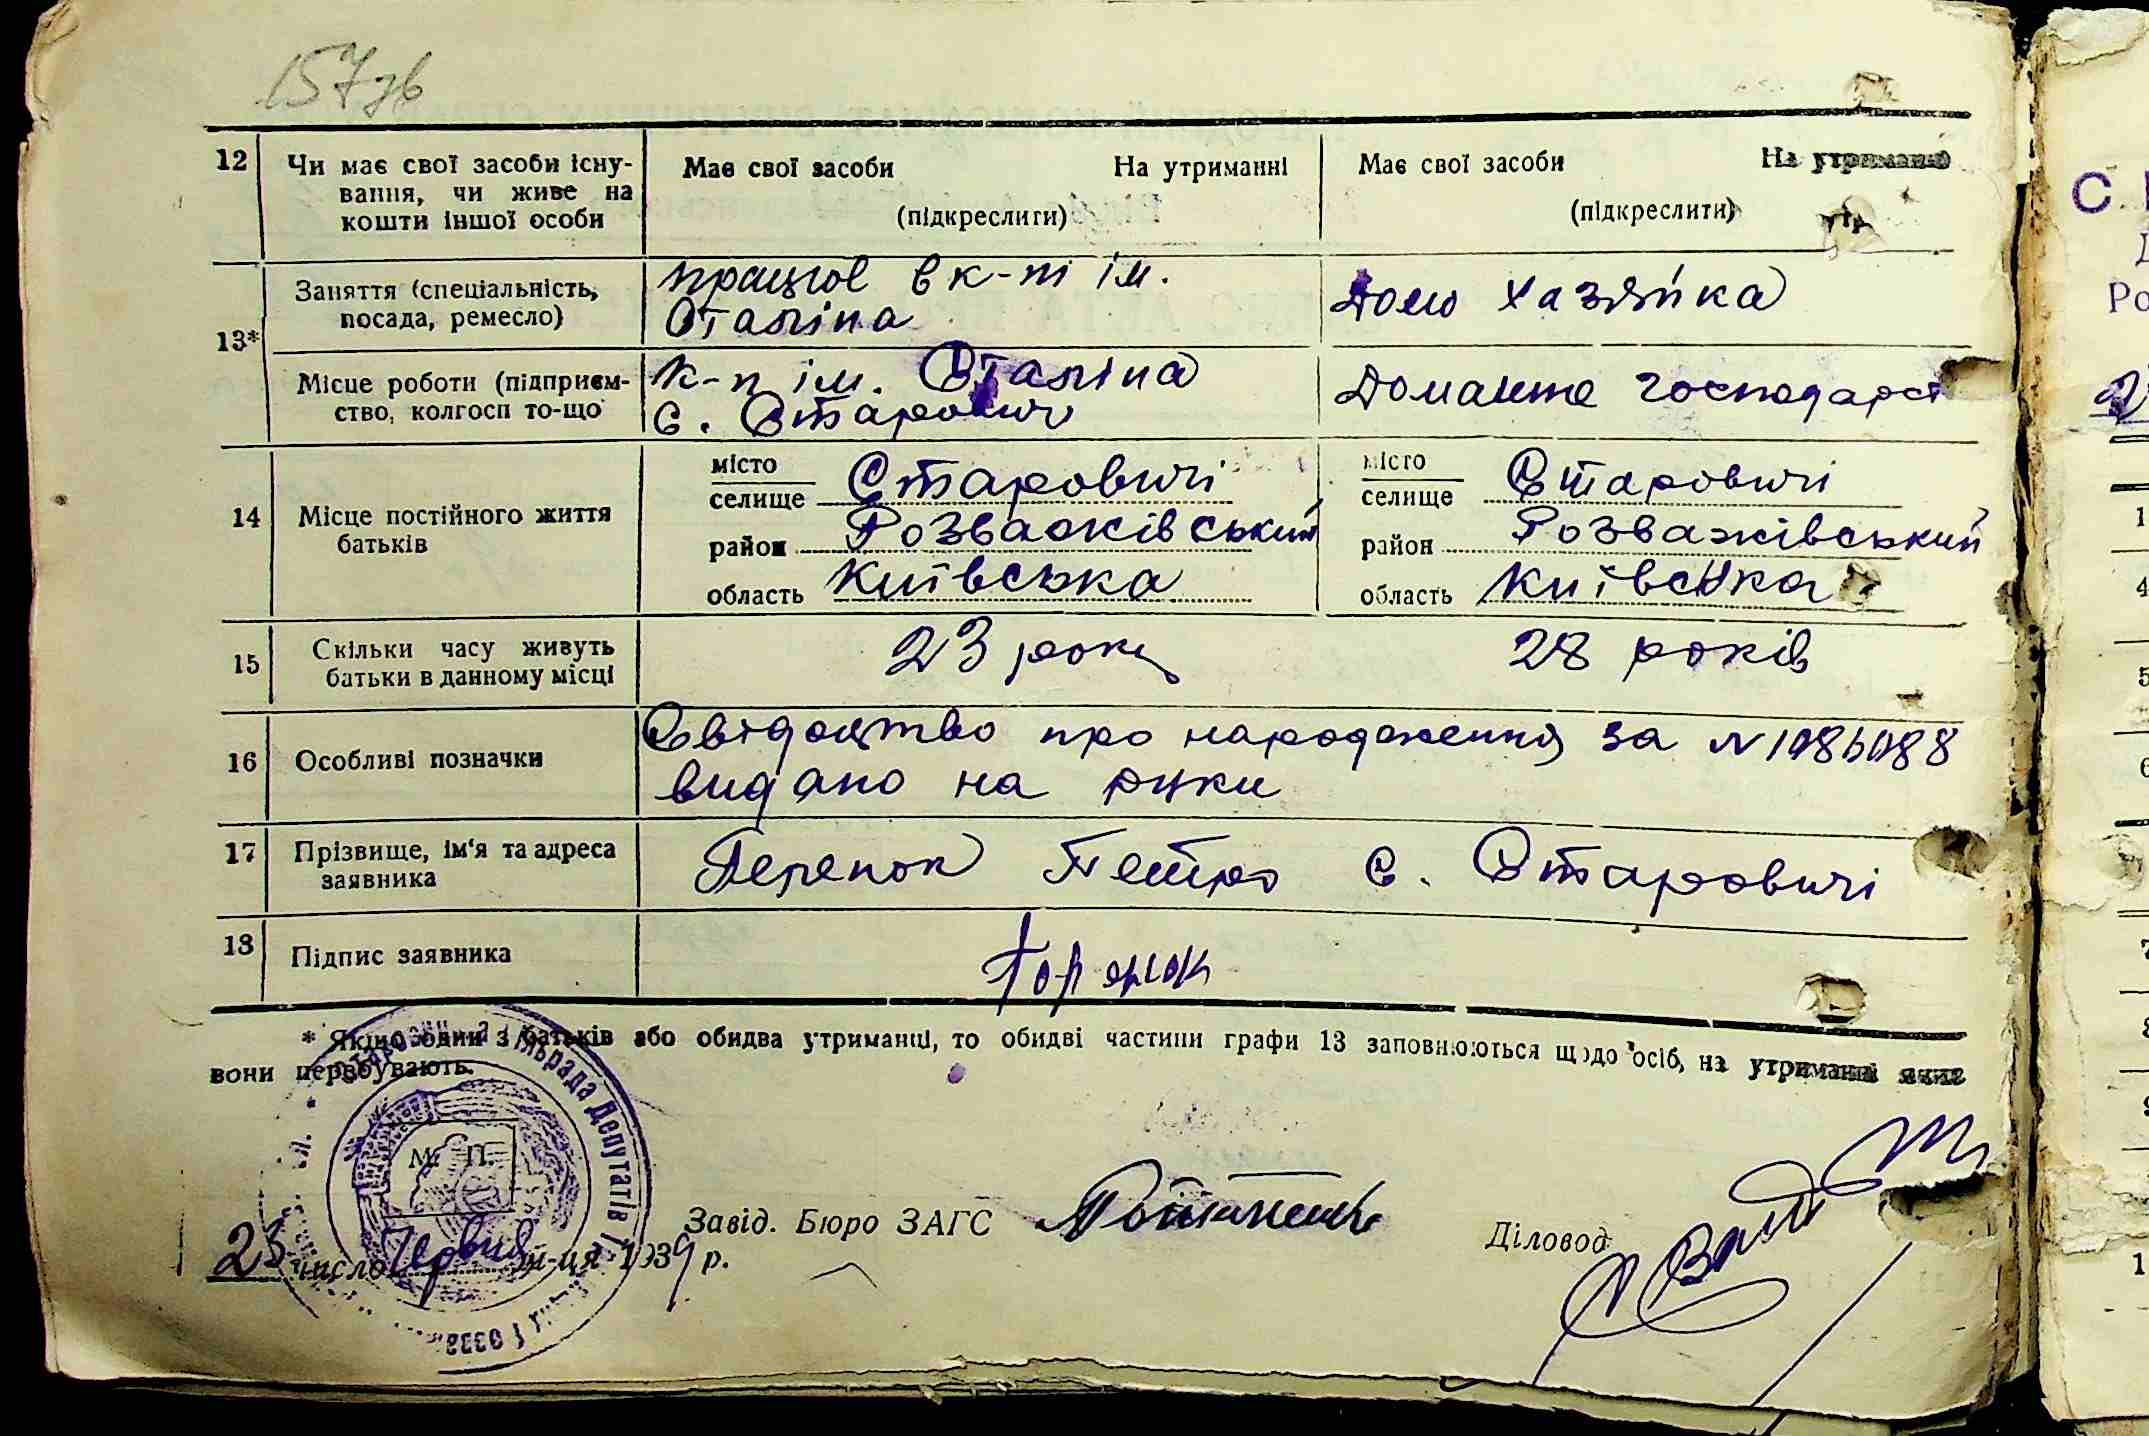 157зв
12
Чи має свої засоби існу-
вання, чи живе на
кошти іншої особи
Має свої засоби На утриманні
(підкреслити)
Має свої засоби На утриманні
(підкреслити)
13*
Заняття (спеціальність,
посада, ремесло)
працює в к-пі ім.
Сталіна
Домо Хазяйка
Місце роботи (підприєм-
ство, колгосп то-що
к-п ім. Сталіна
с. Старовичі
Домашнє господарст
14
Місце постійного життя
батьків
місто
селище Старовичі
район Розважівський
область Київська
місто
селище Старовичі
район Розважівський
область Київська
15
Скільки часу живуть
батьки в данному місці
23 роки
28 років
16
Особливі позначки
Свідоцтво про народження за №
видано на руки
17
Прізвище, ім'я та адреса
заявника
Петро с. Старовичі
13
Підпис заявника
* Якщо один з батьків або обидва утриманці, то обидві частини графи 13 заповнюються щодо осіб, на утриманні яких
вони перебувають.
М. П.
Завід. Бюро ЗАГС
Діловод
23 число Червня м-ця 1939 р.